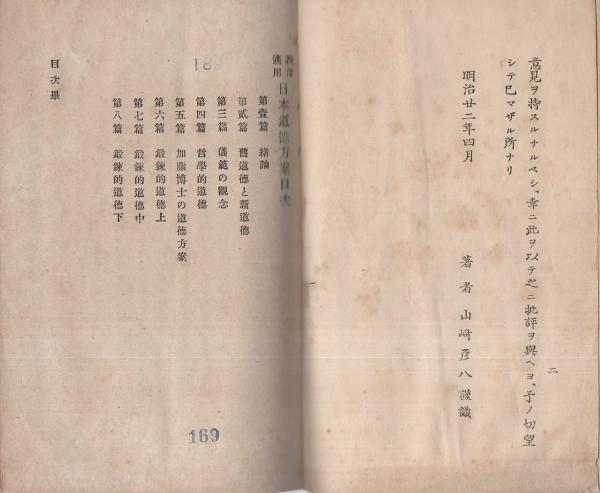 意見ヲ持スルナルベシ、幸ニ此ヲ以テ之ニ批評ヲ與ヘヨ、予ノ切望
シテ已マザル所ナリ
明治廿二年四月
著者 山崎彦八謹識
二
教育適用 日本道德方案目次
第壹篇 緒論
第貳篇 舊道德と新道德
第三篇 儀範の觀念
第四篇 哲學的道德
第五篇 加藤博士の道德方案
第六篇 鍛鍊的道德上
第七篇 鍛鍊的道德中
第八篇 鍛鍊的道德下
目次畢
169